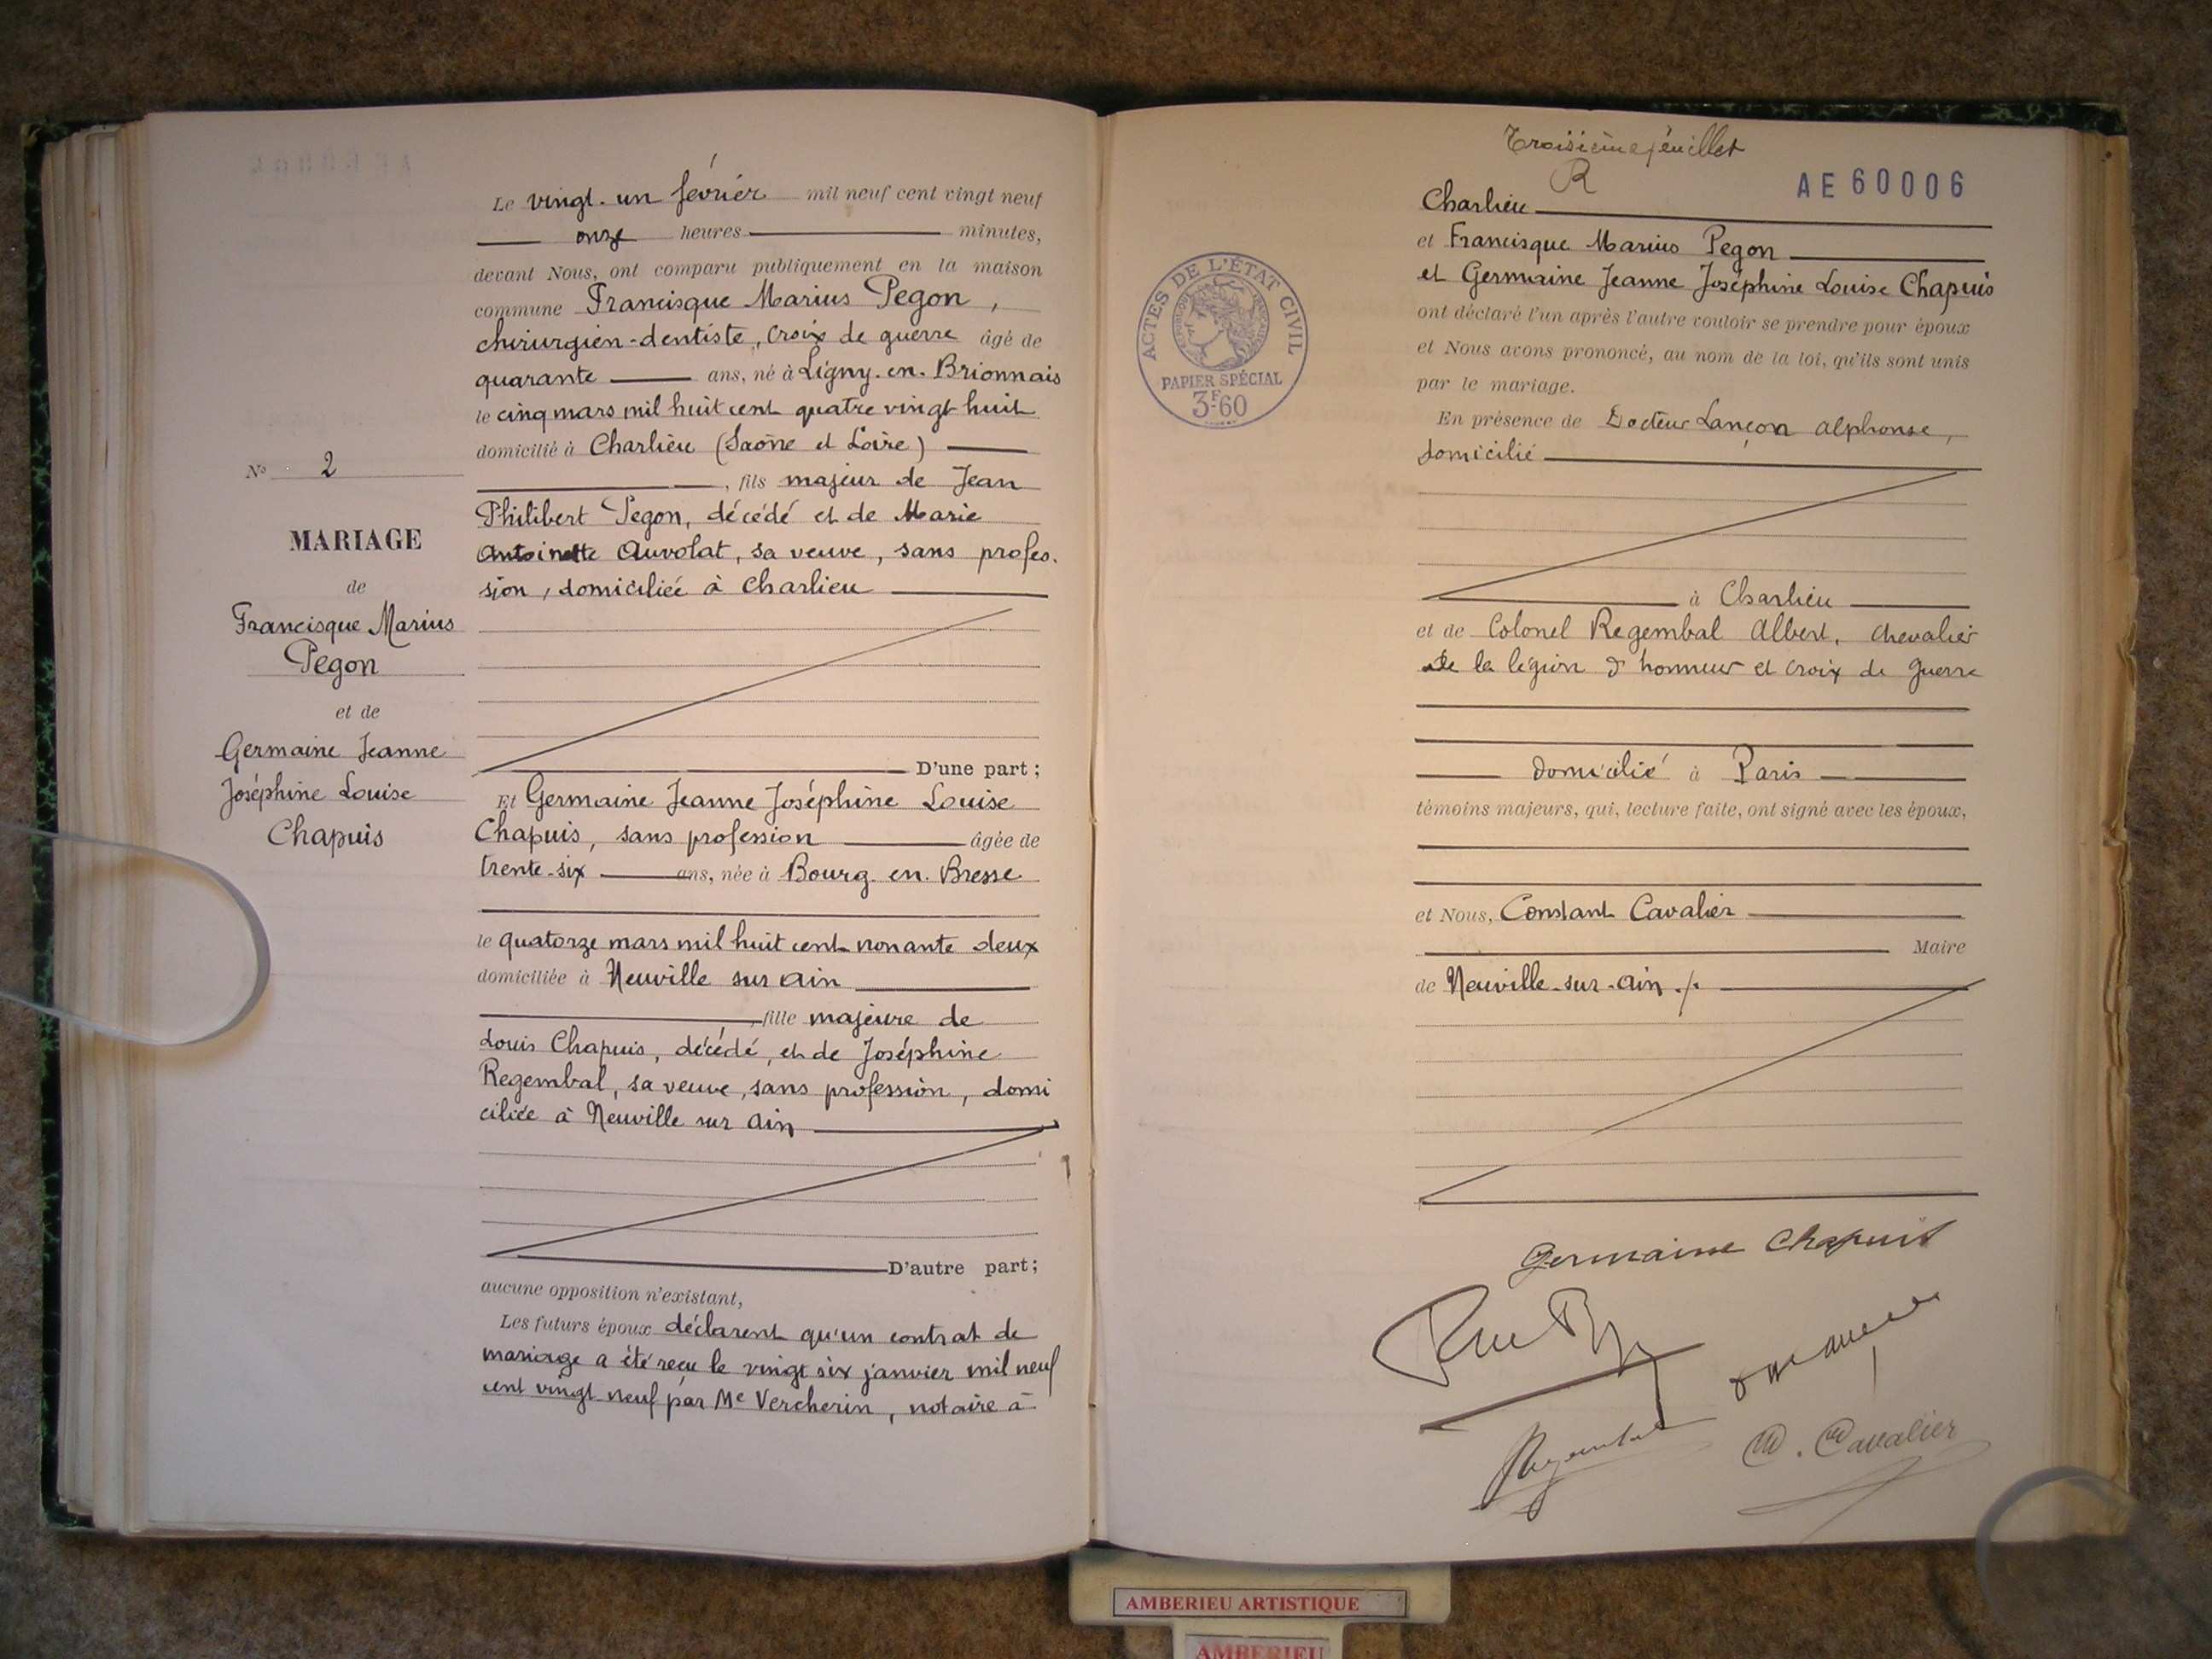 Le vingt-un février mil neuf cent vingt neuf
onze heures minutes,
devant Nous, ont comparu publiquement en la maison
commune Francisque Marius Pegon,
chirurgien-dentiste, croix de guerre âgé de
quarante ans, né à Ligny-en-Brionnais
le cinq mars mil huit cent quatre vingt huit
domicilié à Charlieu (Saône et Loire)
, fils majeur de Jean
Philibert Pegon, décédé et de Marie
Antoinette Auvolat, sa veuve, sans profes-
sion, domiciliée à Charlieu
D'une part;
Et Germaine Jeanne Joséphine Louise
Chapuis, sans profession âgée de
trente-six ans, née à Bourg-en-Bresse
le quatorze mars mil huit cent nonante deux
domiciliée à Neuville sur Ain
, fille majeure de
Louis Chapuis, décédé, et de Joséphine
Regembal, sa veuve, sans profession, domi
ciliée à Neuville sur Ain
D'autre part;
aucune opposition n'existant,
Les futurs époux déclarent qu'un contrat de
mariage a été reçu le vingt six janvier mil neuf
cent vingt neuf par Me Vercherin, notaire à
N° 2
MARIAGE
de
Francisque Marius
Pegon
et de
Germaine Jeanne
Joséphine Louise
Chapuis
Troisième feuillet
R
AE 60006
ACTES DE L'ÉTAT CIVIL
PAPIER SPÉCIAL
3F60
Charlieu
et Francisque Marius Pegon
et Germaine Jeanne Joséphine Louise Chapuis
ont déclaré l'un après l'autre vouloir se prendre pour époux
et Nous avons prononcé, au nom de la loi, qu'ils sont unis
par le mariage.
En présence de Docteur Lançon Alphonse,
domicilié
à Charlieu
et de Colonel Regembal Albert, chevalier
de la légion d'honneur et croix de guerre
domicilié à Paris
témoins majeurs, qui, lecture faite, ont signé avec les époux,
et Nous, Constant Cavalier
Maire
de Neuville-sur-Ain ./.
Germaine Chapuis
Regembal
C. Cavalier
AMBERIEU ARTISTIQUE
AMBERIEU